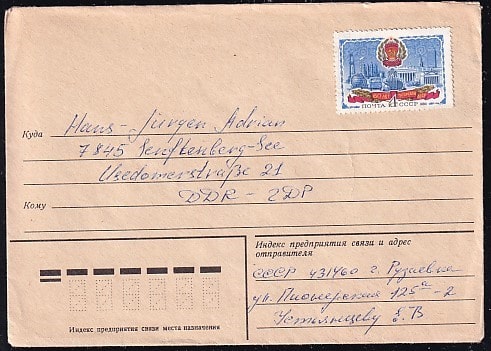 ПОЧТА СССР
Куда
Hans-Jürgen Adrian
7845 Senftenberg-See
Usedomerstraße 21
DDR - ГДР
Кому
Индекс предприятия связи и адрес отправителя
СССР 431460 г. Рузаевка
ул. Пионерская 125а-2
Устянцеву Е.В
Индекс предприятия связи места назначения